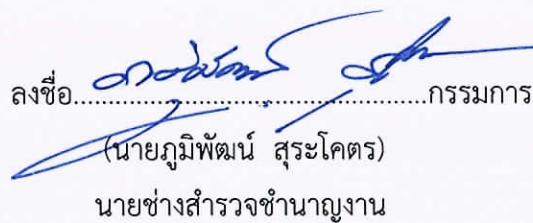 ลงชื่อ..............................................กรรมการ
(นายภูมิพัฒน์ สุระโคตร)
นายช่างสำรวจชำนาญงาน